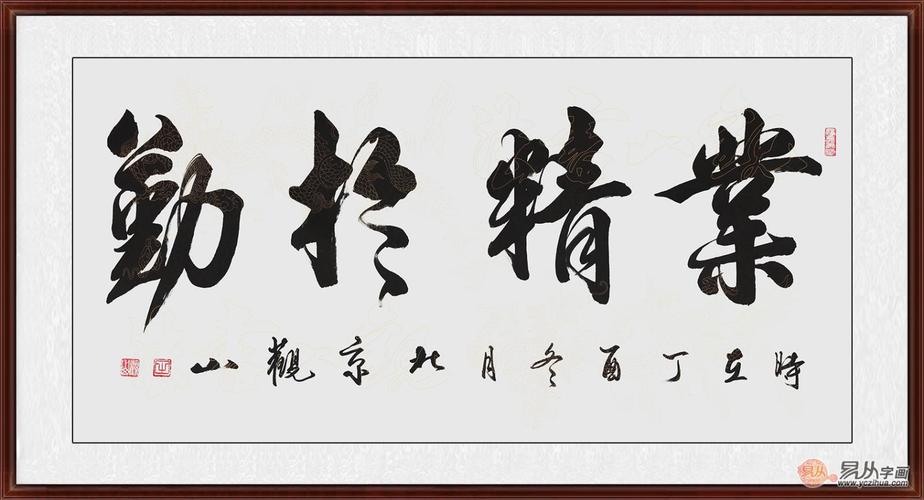 業精於勤
時在丁酉冬月北京觀山
易从
易从字画
www.yczihua.com